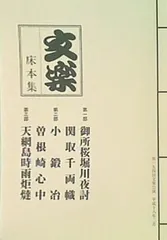 文樂
床本集
第一部
御所桜堀川夜討
関取千両幟
第二部
小鍛冶
曽根崎心中
第三部
天網島時雨炬燵